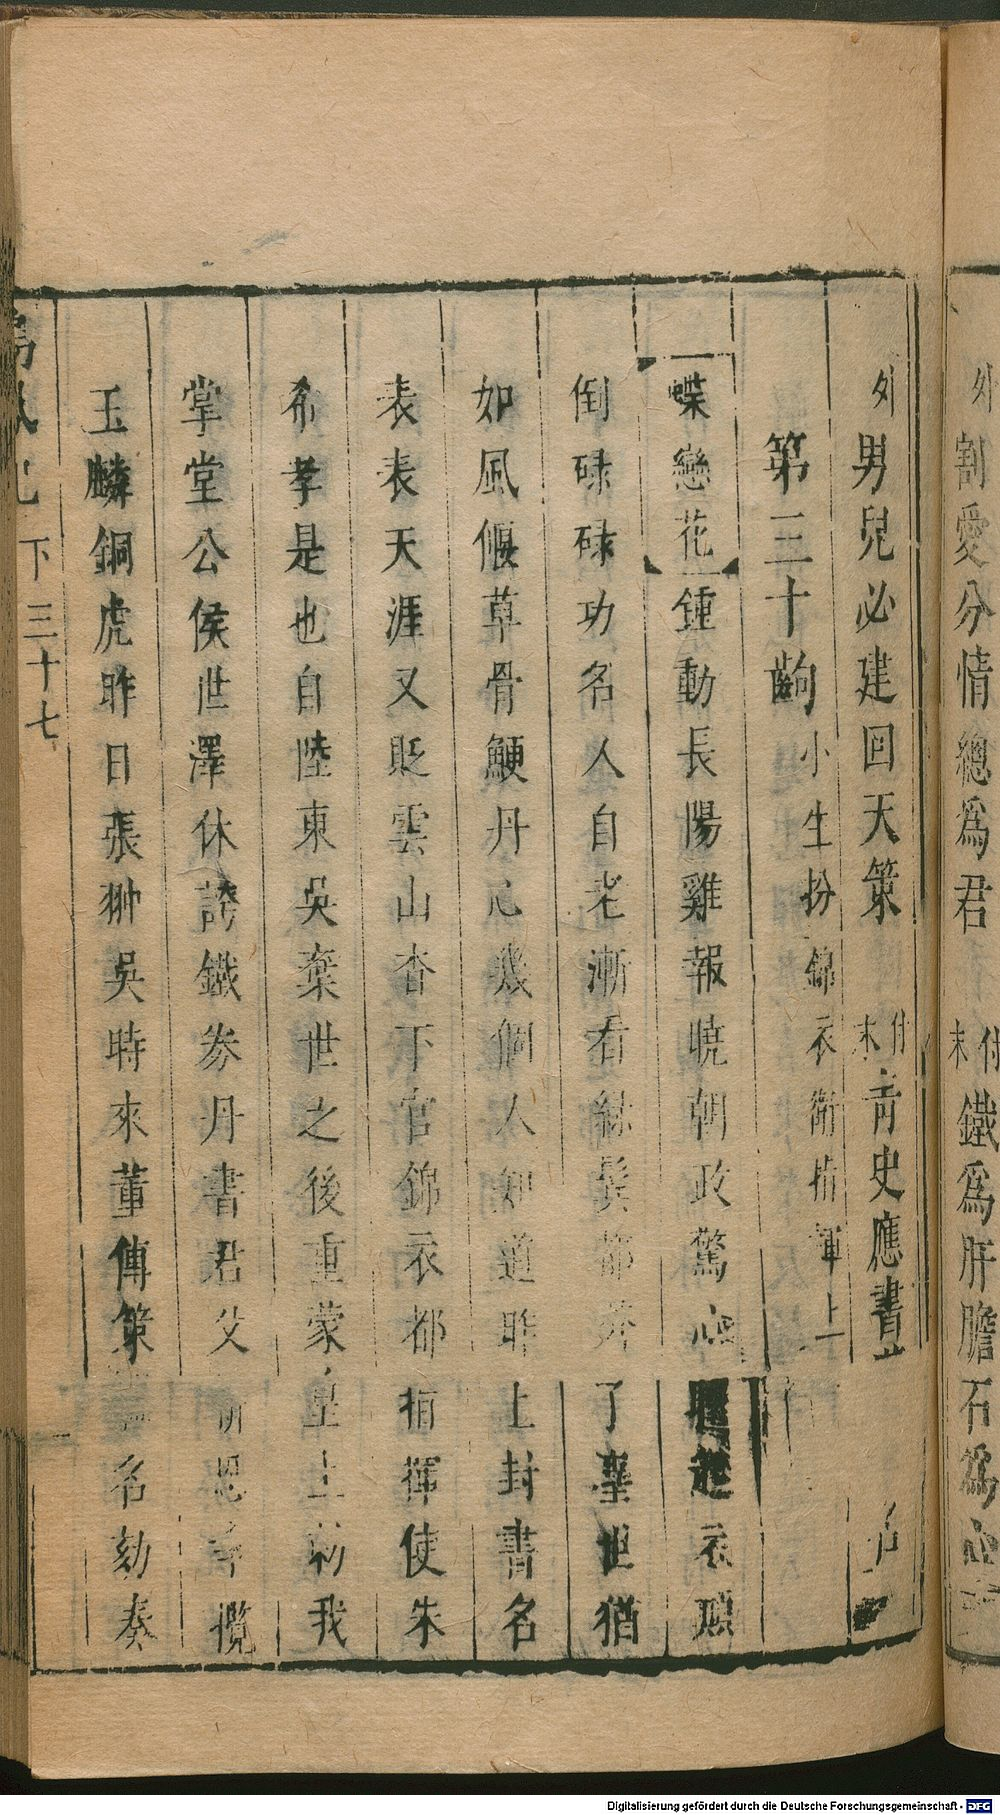 外割愛分情總爲君 付末鐵爲肝膽石爲心
外男兒必建回天策 付末青史應書
第三十齣 小生扮錦衣衛指揮上
蝶戀花 鍾動長陽雞報曉朝政驚心 衣顛
倒碌碌功名人自老漸看綠鬢都 了舉世猶
如風偃草骨鯁丹心幾個人知道昨 上封書名
表表天涯又貶雲山杳下官錦衣都指揮使朱
希孝是也自陸東吳棄世之後重蒙皇上勑我
掌堂公侯世澤休誇鐵券丹書君父 恩 攬
玉麟銅虎昨日張翀吳時來董傳策 名劾奏
鳴鳳記 下 三十七
Digitalisierung gefördert durch die Deutsche Forschungsgemeinschaft - DFG